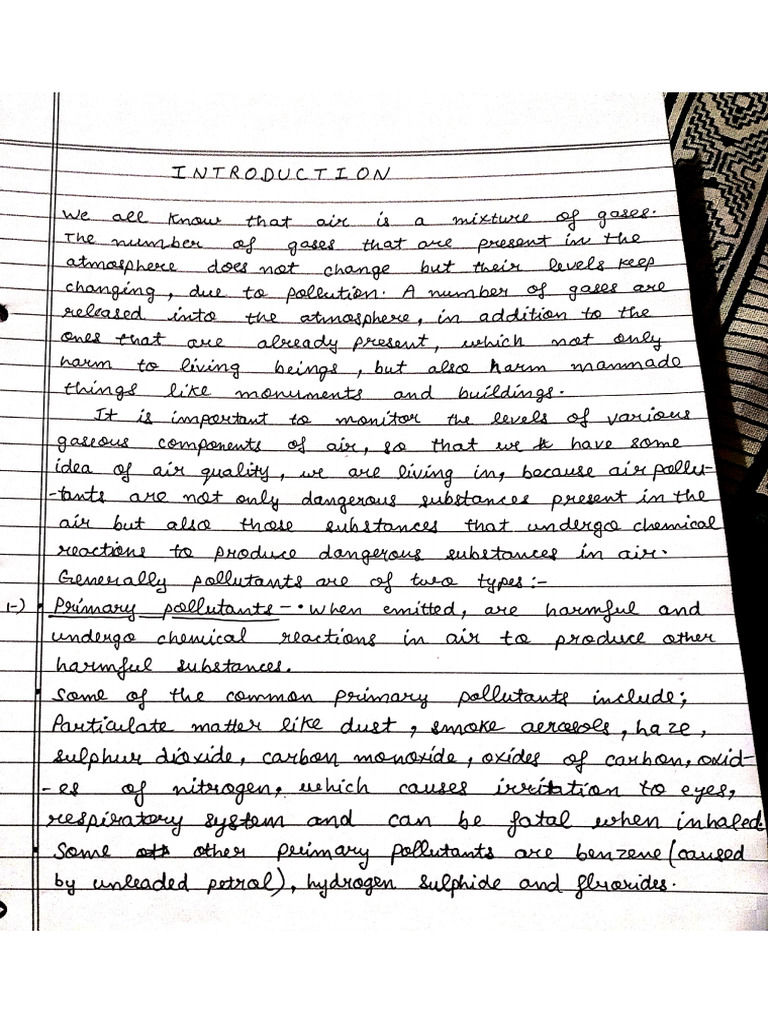 INTRODUCTION
We all know that air is a mixture of gases.
The number of gases that are present in the
atmosphere does not change but their levels keep
changing, due to pollution. A number of gases are
released into the atmosphere, in addition to the
ones that are already present, which not only
harm to living beings, but also harm manmade
things like monuments and buildings.
It is important to monitor the levels of various
gaseous components of air, so that we have some
idea of air quality, we are living in, because air pollu-
-tants are not only dangerous substances present in the
air but also those substances that undergo chemical
reactions to produce dangerous substances in air.
Generally pollutants are of two types:-
1-) Primary pollutants - • when emitted, are harmful and
undergo chemical reactions in air to produce other
harmful substances.
• Some of the common primary pollutants include;
Particulate matter like dust, smoke aerosols, haze,
sulphur dioxide, carbon monoxide, oxides of carbon, oxid-
-es of nitrogen, which causes irritation to eyes,
respiratory system and can be fatal when inhaled.
• Some other primary pollutants are benzene (caused
by unleaded petrol), hydrogen sulphide and fluorides.